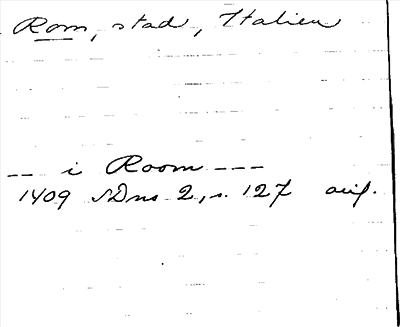 Rom, stad, Italien
-- i Room ---
1409 SDns 2, s. 127 avif.